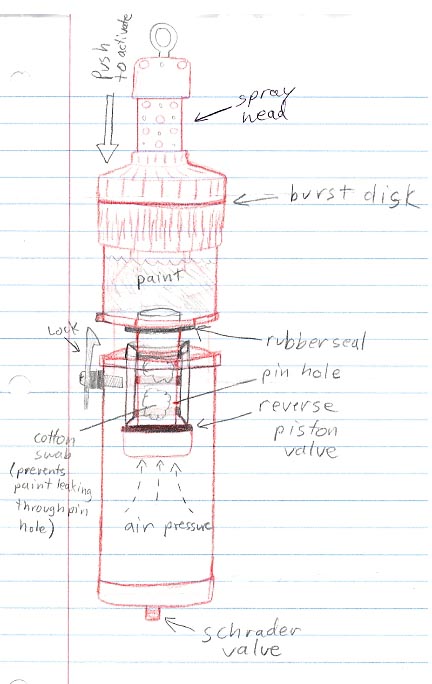 Push
to activate
spray
head
burst disk
paint
Lock
rubber seal
pin hole
reverse
piston
valve
cotton
swab
(prevents
paint leaking
through pin
hole)
air pressure
schrader
valve